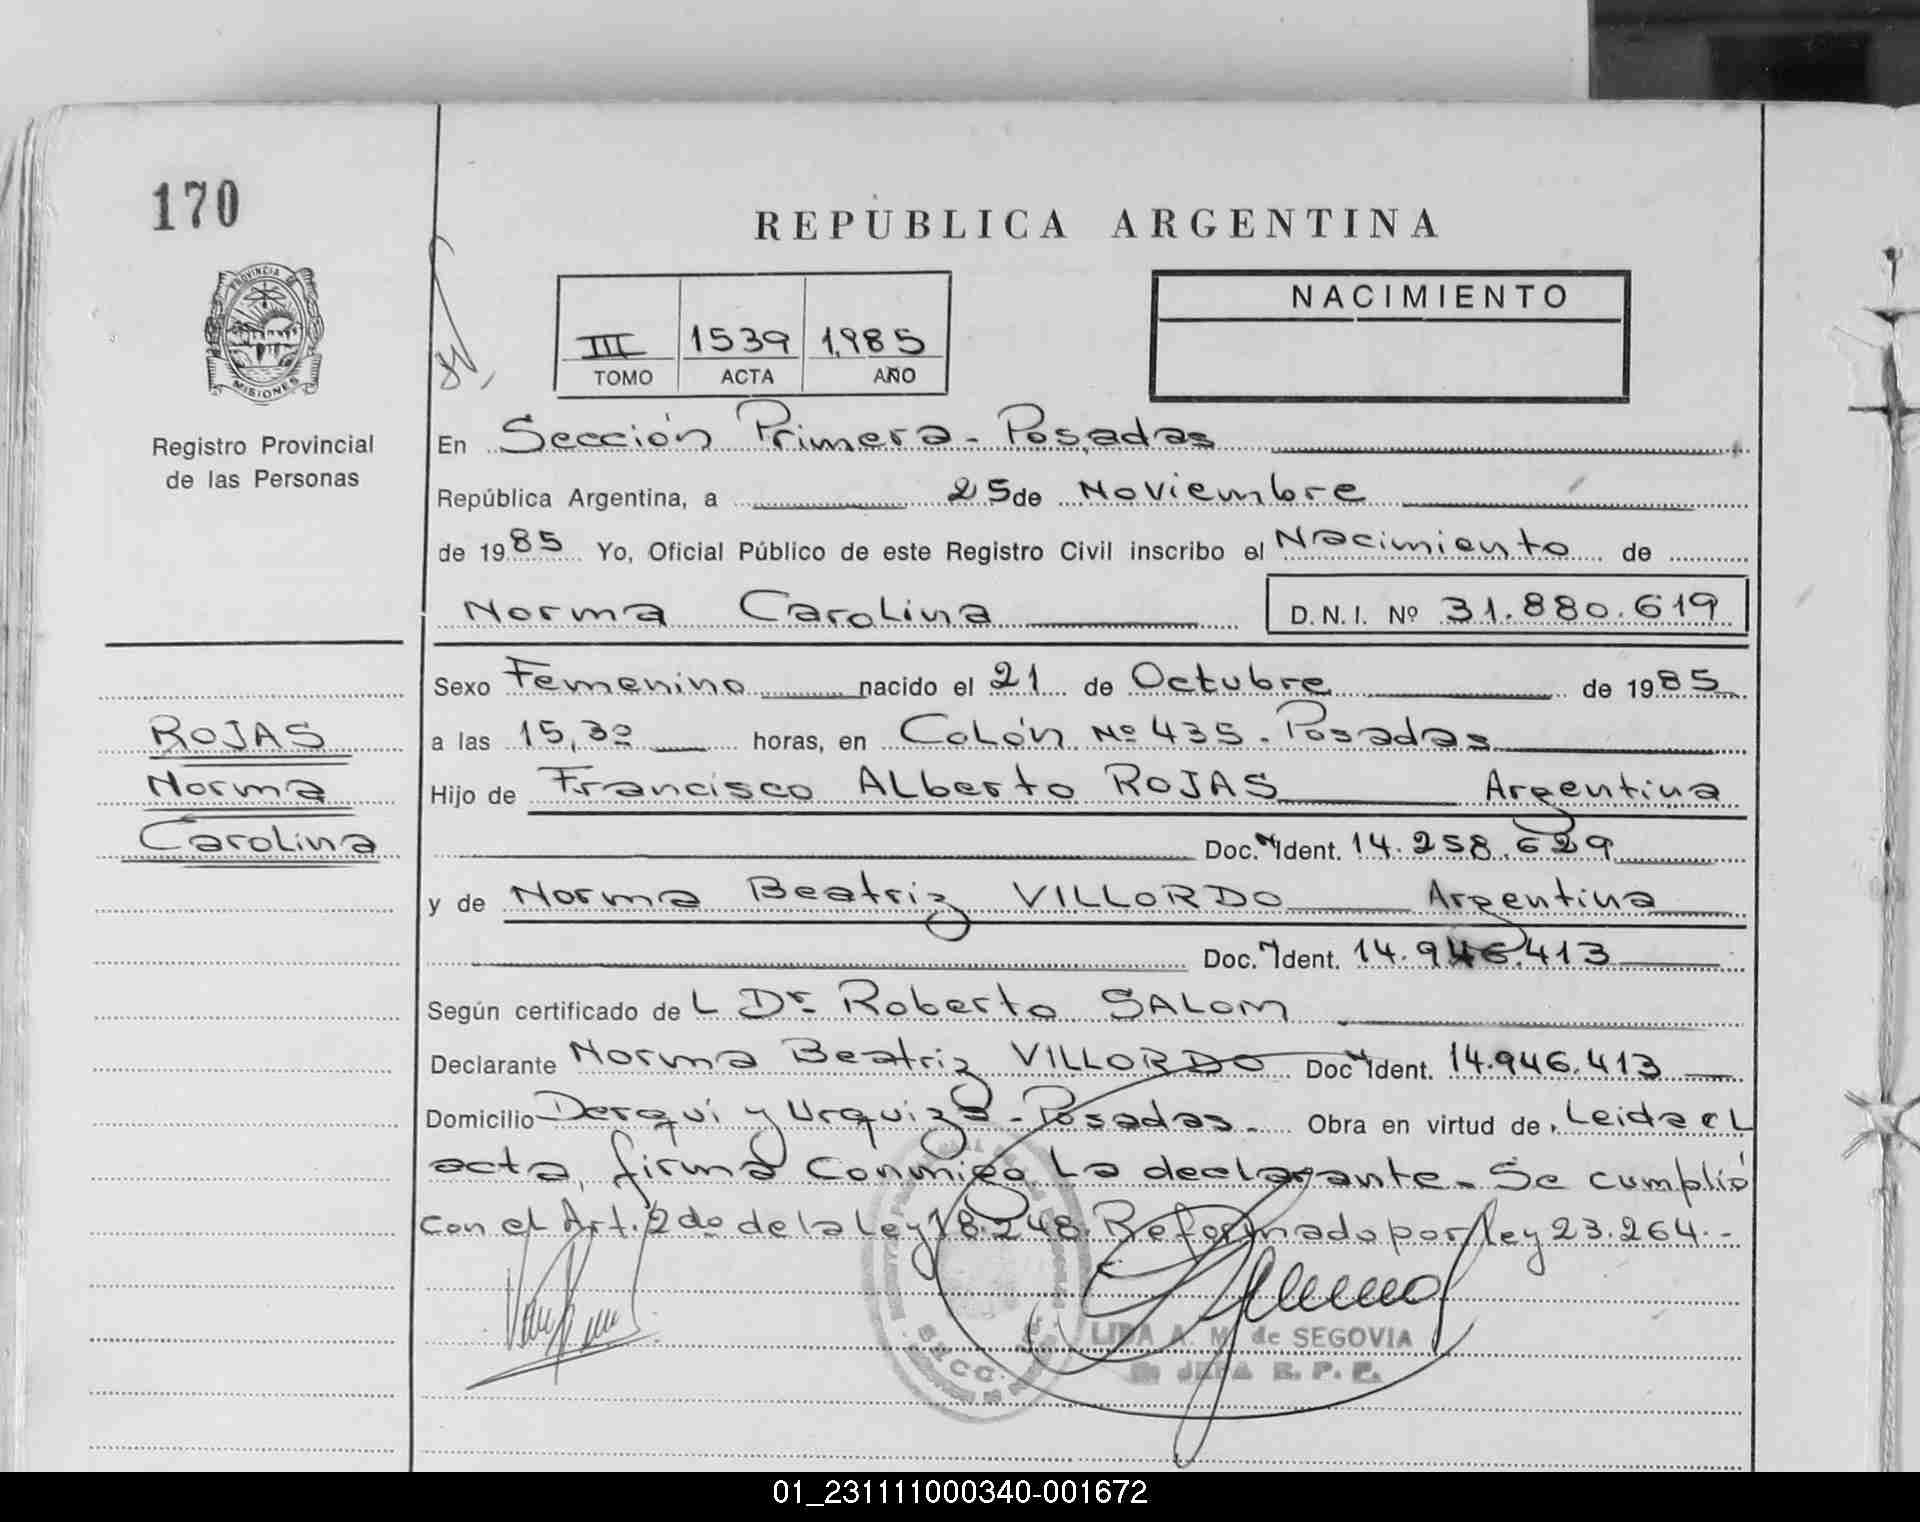 170
REPUBLICA ARGENTINA
PROVINCIA DE
MISIONES
NACIMIENTO
III 1539 1985
TOMO ACTA AÑO
Registro Provincial
de las Personas
En Sección Primera - Posadas
República Argentina, a 25 de Noviembre
de 1985 Yo, Oficial Público de este Registro Civil inscribo el Nacimiento de
Norma Carolina D. N. I. Nº 31.880.619
Sexo Femenino nacido el 21 de Octubre de 1985
ROJAS
Norma
Carolina
a las 15,30 horas, en Colón Nº 435. Posadas
Hijo de Francisco Alberto ROJAS Argentina
Doc. Ident. 14.258.629
y de Norma Beatriz VILLORDO Argentina
Doc. Ident. 14.946.413
Según certificado del Dr. Roberto SALOM
Declarante Norma Beatriz VILLORDO Doc Ident. 14.946.413
Domicilio Derqui y Urquiza - Posadas. Obra en virtud de, Leida el
acta, firma conmigo la declarante. Se cumplió
con el Art. 2do de la Ley 18.248. Reformado por ley 23.264.-
LIDA A. M. de SEGOVIA
JEFA R. P. P.
01_231111000340-001672